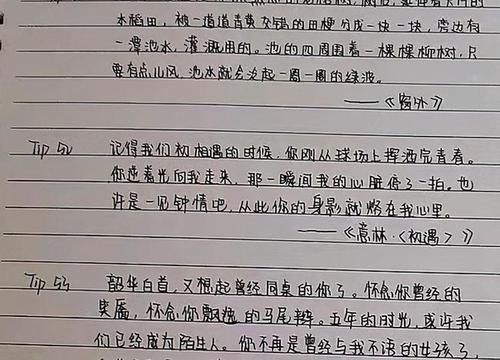 水稻田，被一道道青黄交错的田埂分成一块一块，旁边有
一潭池水，灌溉用的。池的四周围着一棵棵柳树，只
要有点山风，池水就会泛起一圈一圈的绿波。
——《窗外》
Tip 52 记得我们初相遇的时候，你刚从球场上挥洒完青春。
你逆着光向我走来，那一瞬间我的心脏停了一拍。也
许是一见钟情吧，从此你的身影就烙在我心里。
——《意林·〈初遇〉》
Tip 53 韶华白首，又想起曾经同桌的你了。怀念你曾经的
笑靥，怀念你飘逸的马尾辫。五年的时光，或许我
们已经成为陌生人。你不再是曾经与我不语的女孩了，